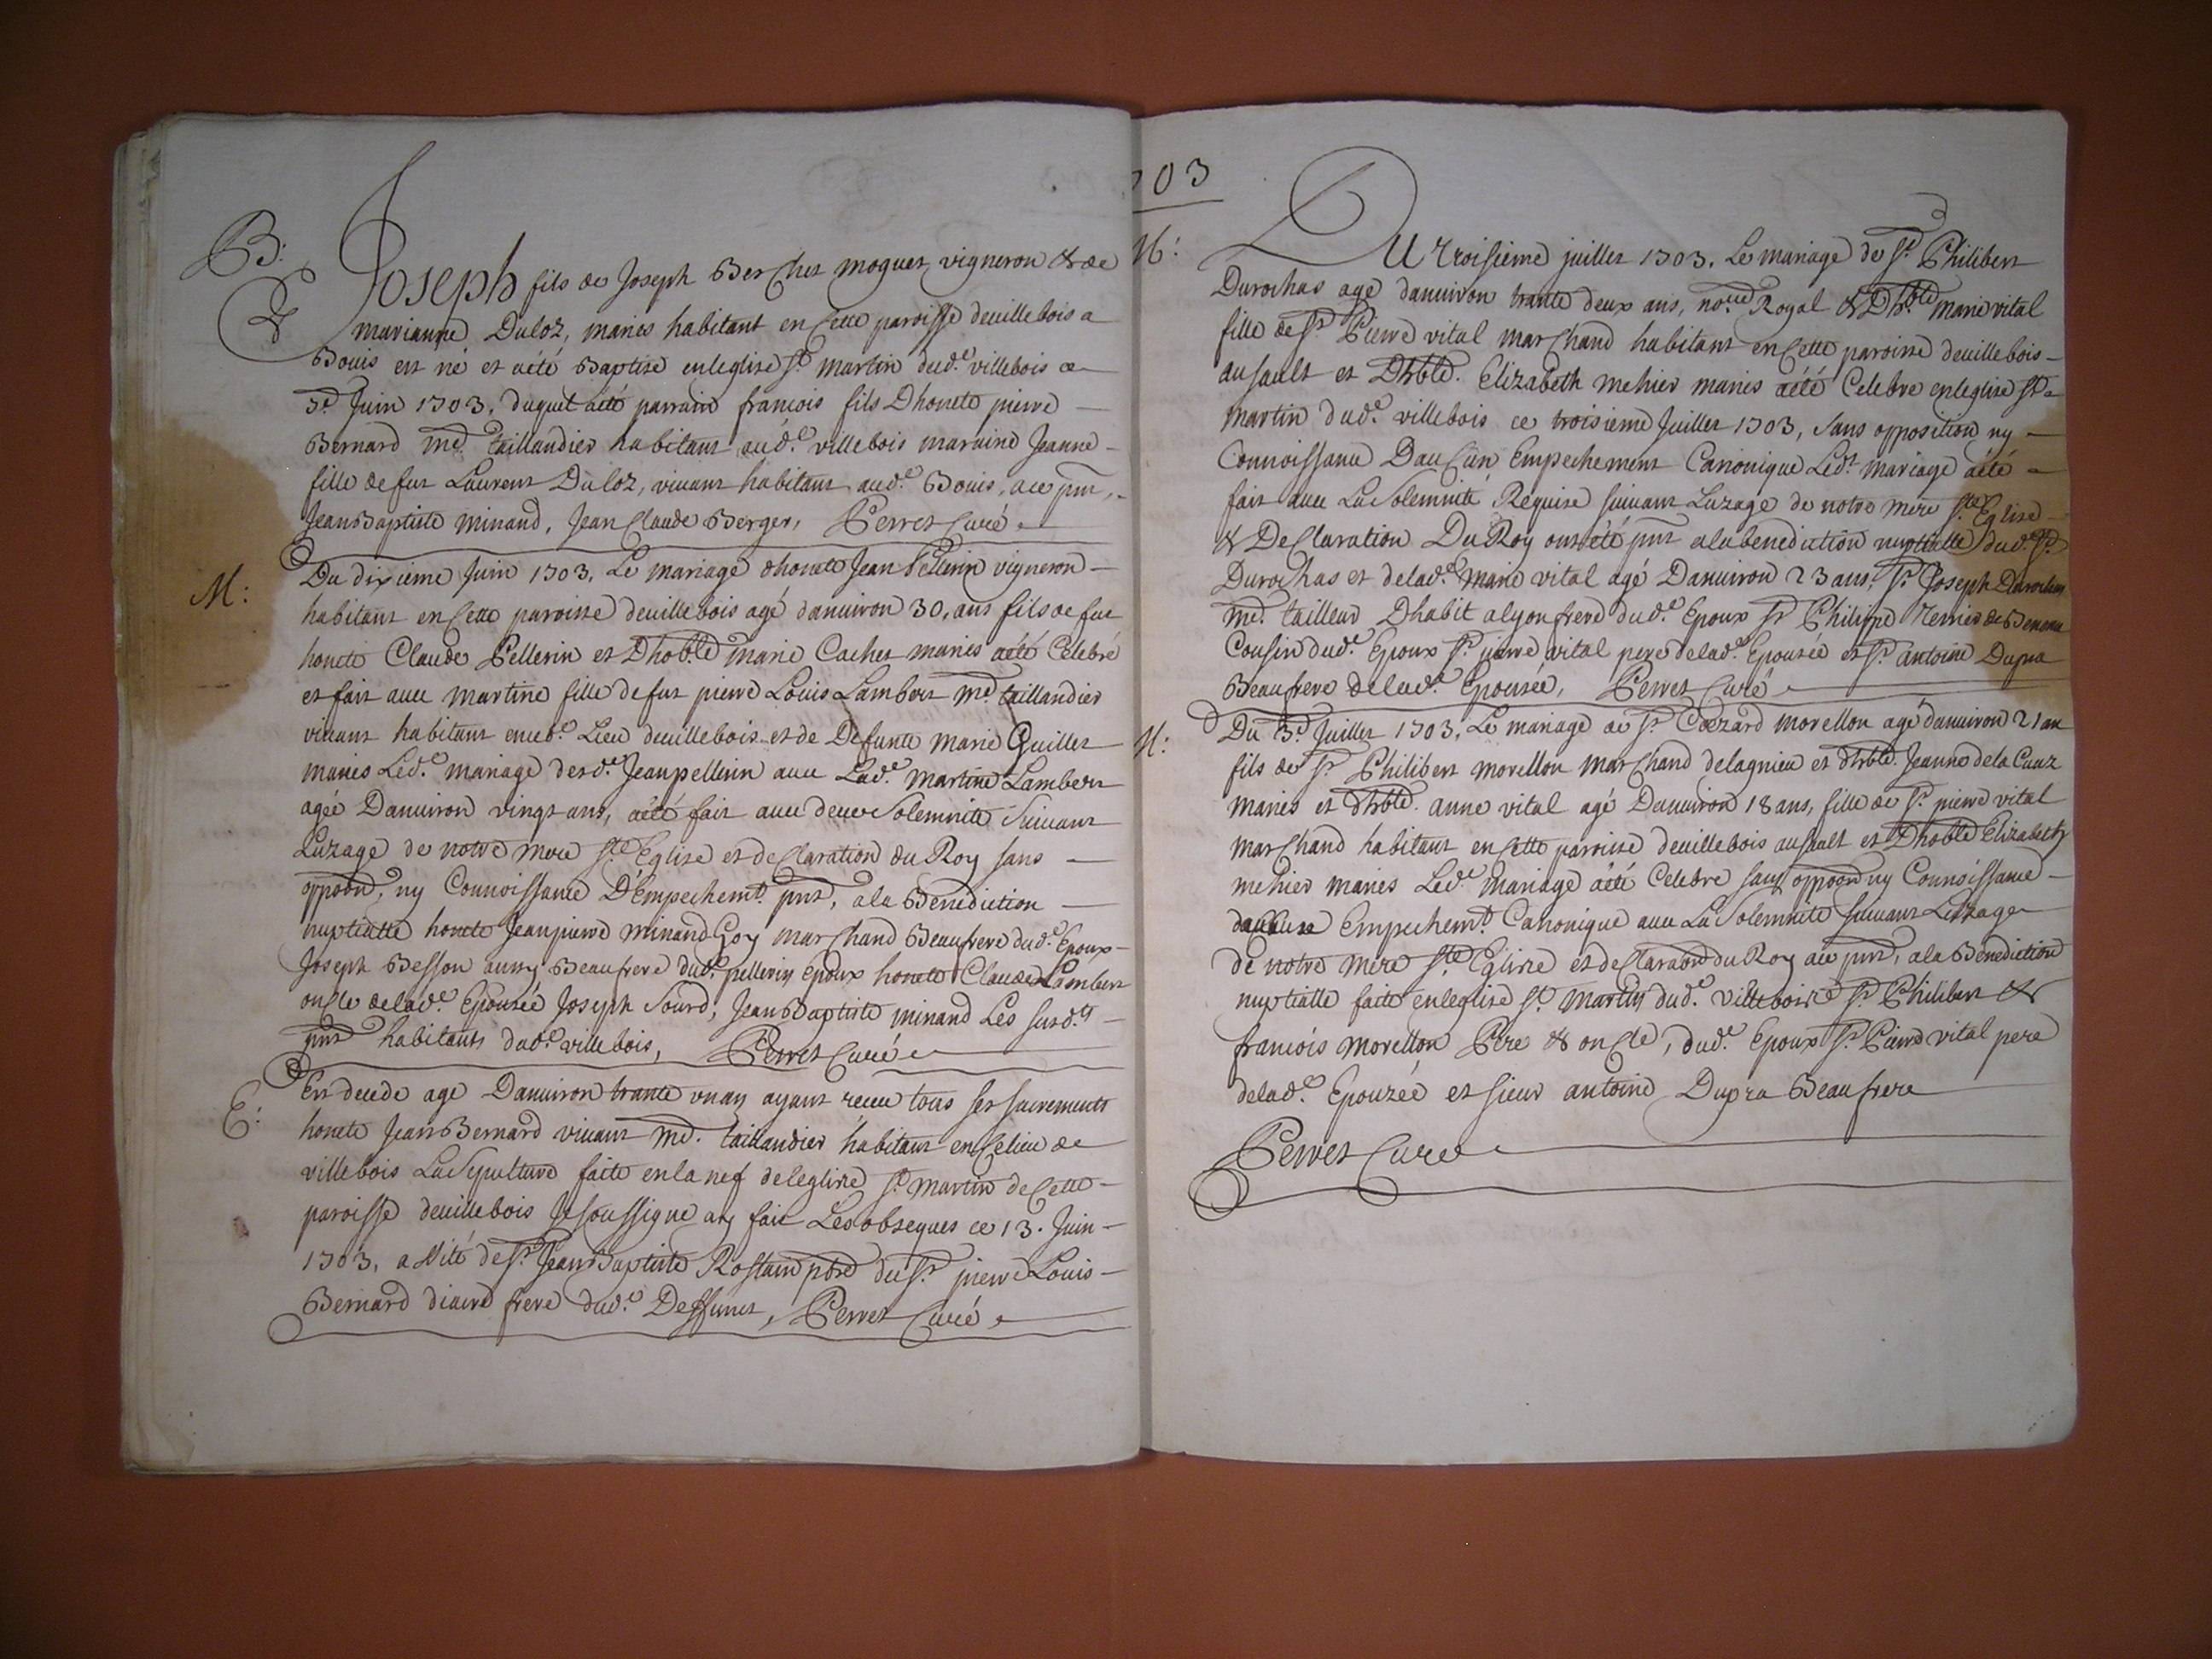 B:
Joseph fils de Joseph Berchet moguet vigneron & de
marianne Duloz, maries habitant en cette paroisse de villebois a
Bouis est né et aété Baptise en leglise St. martin dud.e villebois ce
3e. Juin 1703. duquel aété parrain francois fils Dhonete pierre
Bernard md. taillandier habitant aud.e villebois maraine Jeanne
fille de fut Laurent Duloz, vivant habitant aud.e Bouis, ace pnt,
Jean Baptiste minand, Jean Claude Berger, Perret Curé
M:
Du dixieme Juin 1703. Le mariage dhonete Jean Pellerin vigneron
habitant en cette paroisse de villebois agé danuiron 30. ans fils de fut
honete Claude Pellerin et Dhoble marie Cachet maries aété Célébré
et fait avec martine fille de fut pierre Louis Lambert md. taillandier
vivant habitant eued.e Lieu de villebois et de Defunte marie Guillet
maries Led.e mariage desd.e Jean pellerin avec Lad.e martine Lambert
agée Danuiron vingt ans, aété fait avec deue Solemnite Suivant
Luzage de notre mere Ste Eglise et declaration du Roy sans
oppoon, ny Connoissance D'Empechemt. pnt, ala Benediction
nuptialle honete Jean pierre minand Goy marchand Beaufrere dud.e Epoux
Joseph Besson aussy Beaufrere dud.e pellerin epoux honete Claude Lambert
oncle delad.e Epouzée Joseph Sourd, Jean Baptiste minand Les susd.ts
pnts habitants dud.e villebois, Perret Curé
E:
Est decede age Danuiron trante un an ayant receu tous ses sacrements
honete Jean Bernard vivant md. taillandier habitant en ce lieu de
villebois La Sepulture faite en la nef de leglise St. martin de cette
paroisse de villebois Je soussigne ay fait Les obseques ce 13. Juin
1703, assité de Sr. Jean Baptiste Rostain pbre du Sr. pierre Louis
Bernard diacre frere dud.e Deffunct, Perret Curé
03
M:
Du troisieme juillet 1703. Le mariage de Sr. Philibert
Durochas agé danuiron trante deux ans, nore. Royal & Dhble. marie vital
fille de Sr. Pierre vital marchand habitant en cette paroisse de villebois
au sault et Dhble. Elizabeth mehier maries aété Celebre en leglise St.
martin dud.e villebois ce troisieme Juillet 1703, sans opposition ny
Connoissance Daucun Empechement Canonique Led.t mariage aété
fait avec La Solemnité Requise suivant Luzage de notre mere Ste Eglise
& Declaration Du Roy ont été pnt ala benediction nuptialle dud.e Sr.
Durochas et delad.e marie vital agé Danuiron 23 ans, Sr. Joseph Durochas
md. tailleur Dhabit a lyon frere dud.e Epoux Sr Philippe
Cousin dud.e Epoux Sr. pierre vital pere delad.e Epouzée et Sr. antoine Dupra
Beaufrere delad.e Epouzée, Perret Curé
M:
Du 3e. Juillet 1703. Le mariage de Sr. Coezard morellon agé danuiron 21 an
fils de Sr. Philibert morellon marchand delagnieu et dhble. Jeanne dela Cuaz
maries et dhble. anne vital agé Danuiron 18 ans, fille de Sr. pierre vital
marchand habitant en cette paroisse de villebois au sault et Dhoble Elizabeth
mehier maries Led.e mariage aété Celebre sans oppoon ny Connoissance
daucune Empechemt. Canonique avec La Solemnité suivant Luzage
de notre mere Ste Eglise et declaraon du Roy ace pnt, ala Benediction
nuptialle faite en leglise St. martin dud.e villebois Sr. Philibert &
francois morellon Pere & oncle, dud.e Epoux Sr. Pierre vital pere
delad.e Epouzée et sieur antoine Dupra Beaufrere
Perret Curé